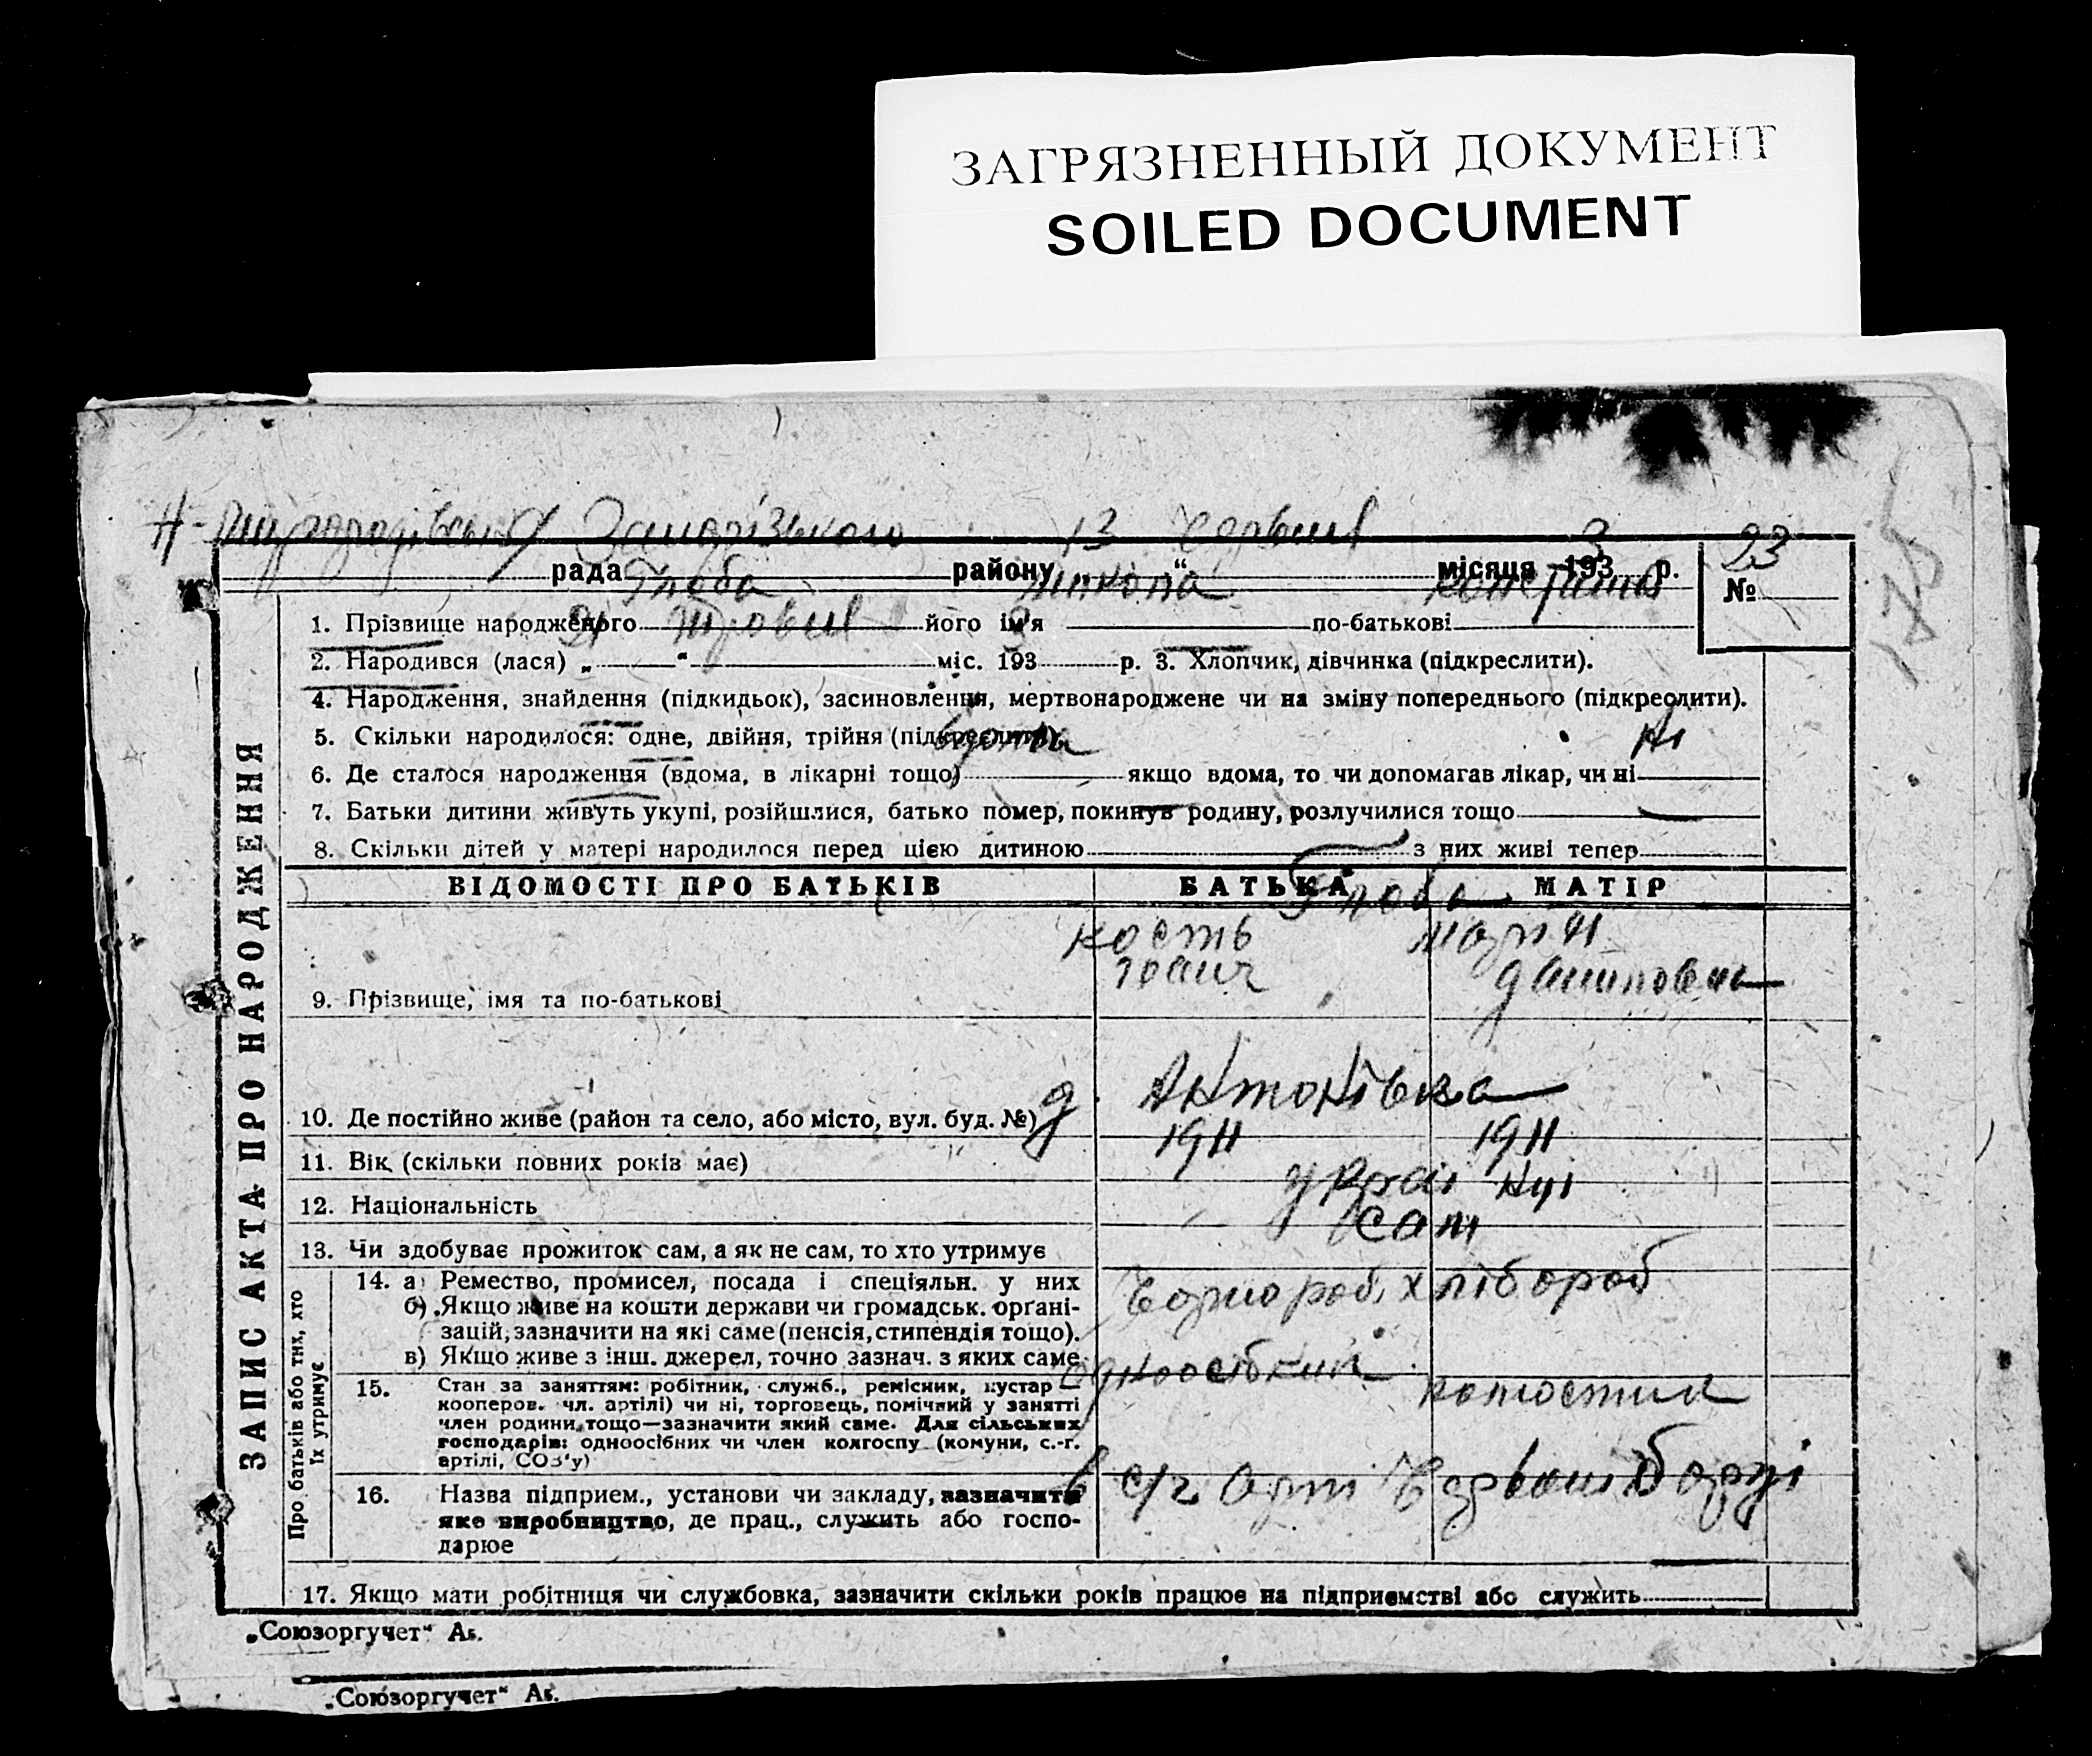 ЗАГРЯЗНЕННЫЙ ДОКУМЕНТ
SOILED DOCUMENT
13 23
рада району " місяця 193 3 р. №
Глоба Микола
1. Прізвище народженого його ім'я по-батькові
21 Травня 3
2. Народився (лася) „ “ міс. 193 р. 3. Хлопчик, дівчинка (підкреслити).
4. Народження, знайдення (підкидьок), засиновлення, мертвонароджене чи на зміну попереднього (підкреслити).
5. Скільки народилося: одне, двійня, трійня (підкреслити).
вдома Ні
6. Де сталося народження (вдома, в лікарні тощо) якщо вдома, то чи допомагав лікар, чи ні
7. Батьки дитини живуть укупі, розійшлися, батько помер, покинув родину, розлучилися тощо
8. Скільки дітей у матері народилося перед цією дитиною з них живі тепер
ВІДОМОСТІ ПРО БАТЬКІВ БАТЬКА МАТІР
Глоба
кость марія
9. Прізвище, імя та по-батькові
д. Антонівка
10. Де постійно живе (район та село, або місто, вул. буд. №)
1911 1911
11. Вік (скільки повних років має)
україн ці
12. Національність
сам
13. Чи здобуває прожиток сам, а як не сам, то хто утримує
Про батьків або тих, хто їх утримує
14. а) Ремество, промисел, посада і спеціяльн. у них
б) Якщо живе на кошти держави чи громадськ. органі-
зацій, зазначити на які саме (пенсія, стипендія тощо).
в) Якщо живе з інш. джерел, точно зазнач. з яких саме
Чорнороб. хлібороб
одноосібний
15. Стан за заняттям: робітник, служб., ремісник, кустар —
кооперов. чл. артілі) чи ні, торговець, помічний у занятті
член родини, тощо—зазначити який саме. Для сільських
господарів: одноосібних чи член колгоспу (комуни, с.-г.
артілі, СОЗ'у)
в с/г арті
16. Назва підприєм., установи чи закладу, зазначити
яке виробництво, де прац., служить або госпо-
дарює
17. Якщо мати робітниця чи службовка, зазначити скільки років працює на підприємстві або служить
ЗАПИС АКТА ПРО НАРОДЖЕННЯ
„Союзоргучет“ Аг.
„Союзоргучет“ Аг.